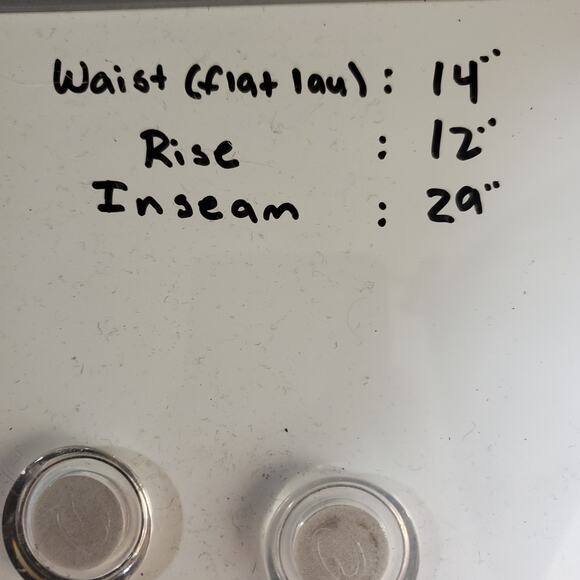 Waist (flat lay) : 14"
Rise : 12"
Inseam : 29"